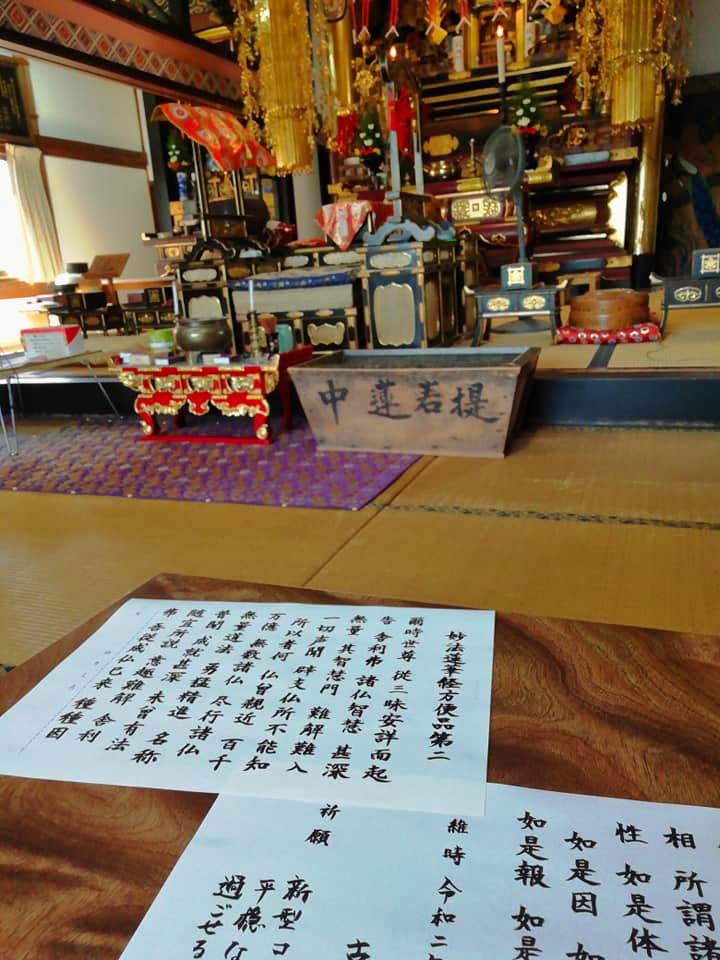 提若蓮中
妙法蓮華経方便品第二
爾時世尊 従三昧安詳而起
告舎利弗 諸仏智慧 甚深
無量 其智慧門 難解難入
一切声聞 辟支仏 所不能知
所以者何 仏曾親近 百千
万億 無数諸仏 尽行諸仏
無量道法 勇猛精進 名称
普聞 成就甚深 未曾有法
随宜所説 意趣難解 舎利
弗 吾従成仏已来 種種因
相 所謂諸
性 如是体
如是因 如
如是報 如是
維時令和二年
古
祈願
新型コ
平穏な
過ごせる